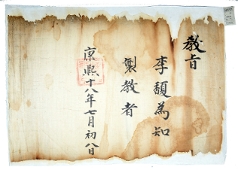 教旨
李頠為知
製教者
康熙十八年七月初八日